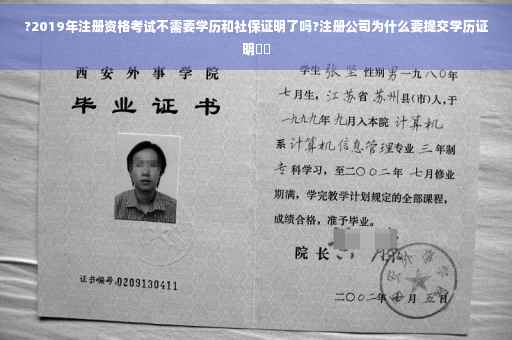 ?2019年注册资格考试不需要学历和社保证明了吗?注册公司为什么要提交学历证
明
西安外事学院
毕业证书
证书编号:0209130411
学生 张坚 性别 男 一九八〇年
七月生, 江苏省 苏州 县(市)人,于
一九九九年 九月入本院 计算机
系 计算机信息管理专业 三 年制
专 科学习, 至二〇〇二年 七月修业
期满, 学完教学计划规定的全部课程,
成绩合格, 准予毕业。
院长
二〇〇二年 月 五日